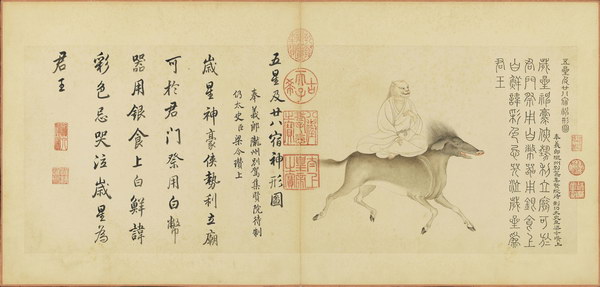 五星及廿八宿神形圖
奉義郎隴州別駕集賢院待制仍太史臣梁令瓚上
歲星神豪俠勢利立廟可於
君門祭用白幣器用銀食上
白鮮諱彩色忌哭泣歲星為
君王
古希天子
五星及廿八宿神形圖
奉義郎隴州別駕集賢院待制
仍太史臣梁令瓚上
歲星神豪俠勢利立廟
可於君門祭用白幣
器用銀食上白鮮諱
彩色忌哭泣歲星為
君王